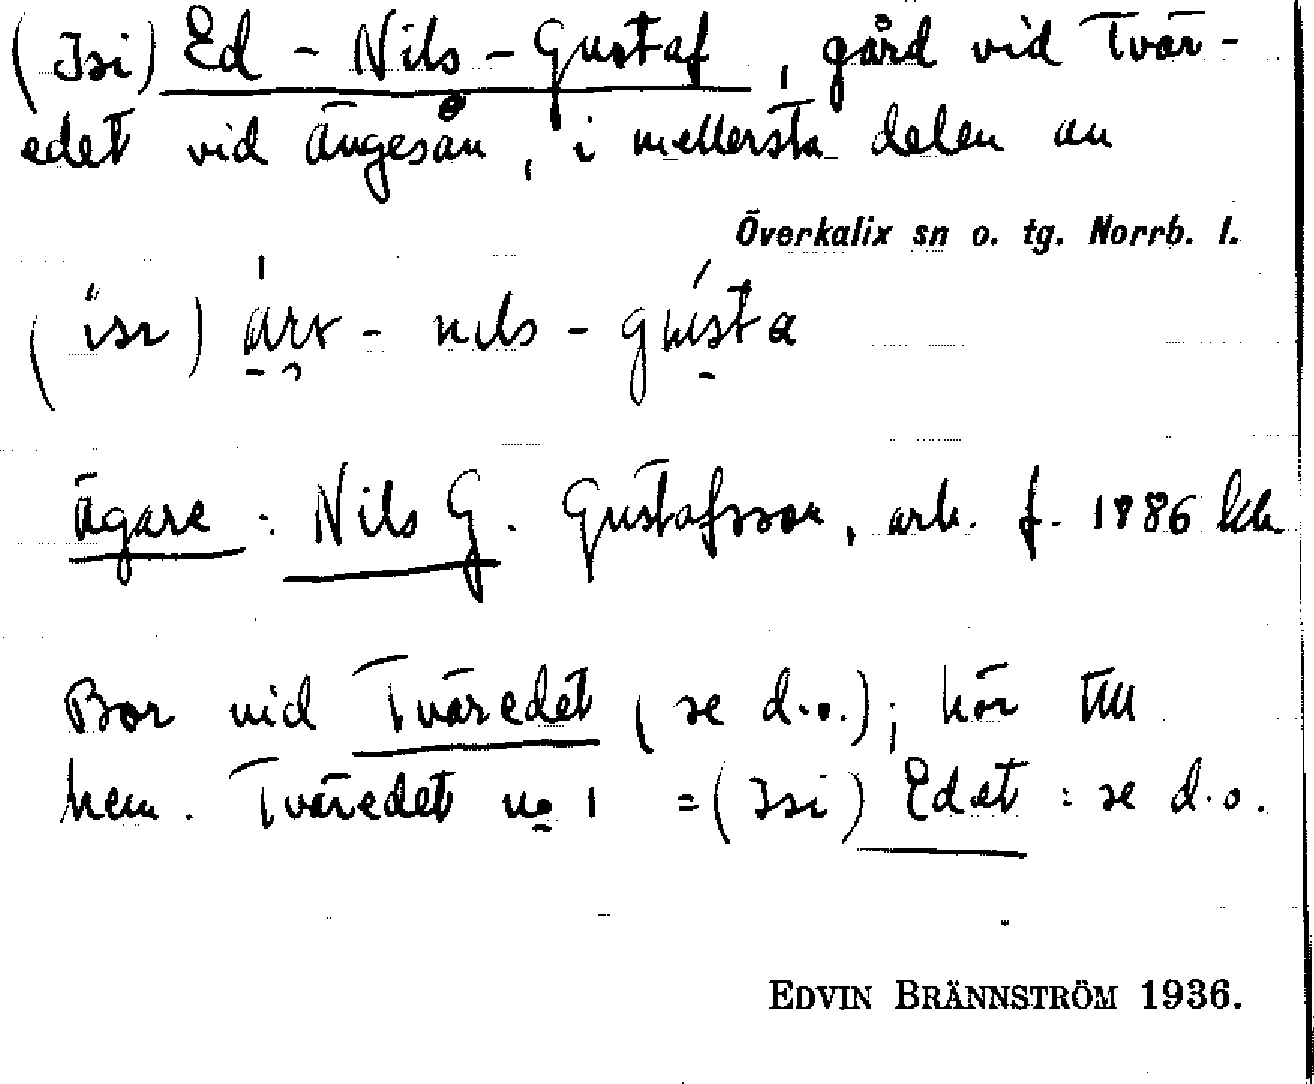 (Isi) Ed - Nils - Gustaf, gård vid Tvär-
edet vid Ängesån, i mellersta delen av
Överkalix sn o. tg. Norrb. l.
- nils - gusta
Ägare: Nils G. Gustafsson, arb. f. 1886
Bor vid Tväredet (se d.o.); hör till
hem. Tväredet no 1 = (Isi) Edet: se d.o.
EDVIN BRÄNNSTRÖM 1936.